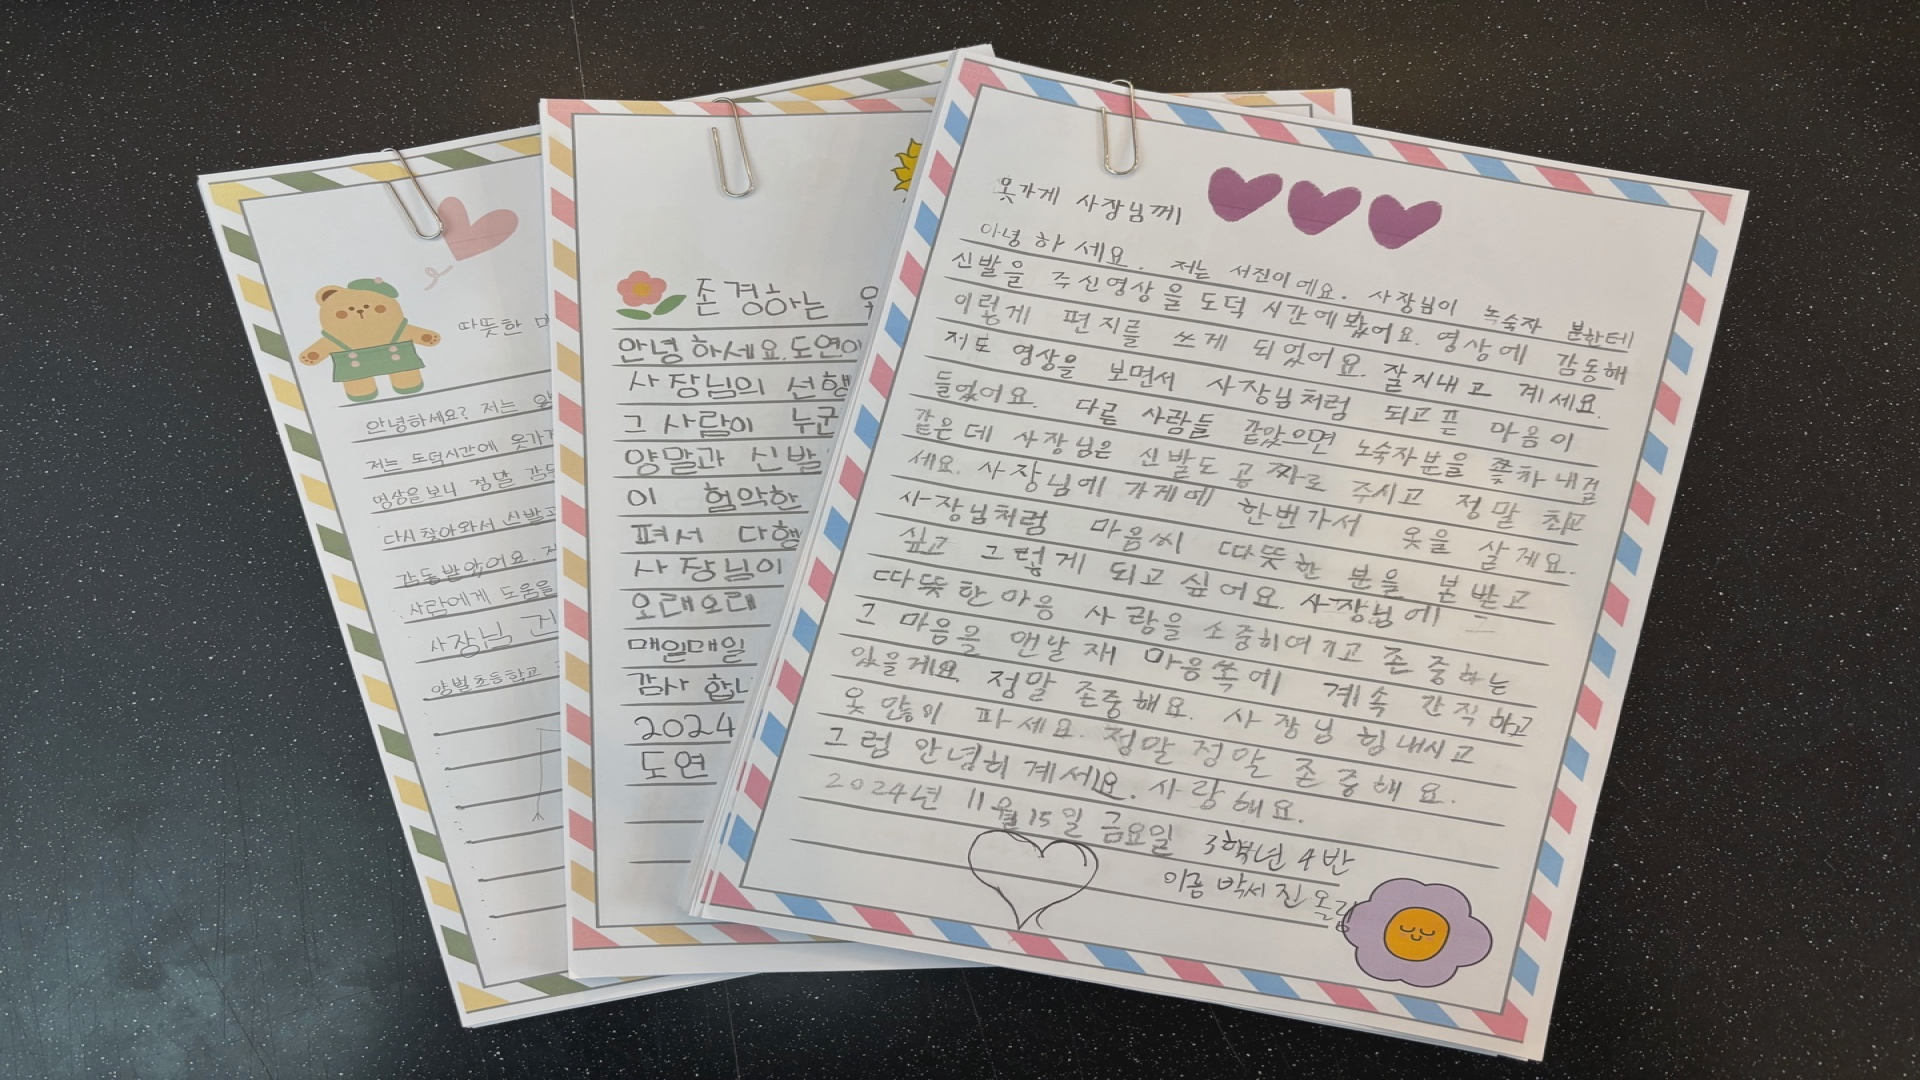 따뜻한
안녕하세요? 저는
저는 도덕시간에 옷가게
영상을 보니 정말 감동
다시 찾아와서 신발과
감동받았어요.
사람에게 도움을
사장님 건
양벌초등학교
존경하는
안녕하세요.도연이
사장님의 선행
그 사람이 누군
양말과 신발
이 험악한
펴서 다행
사장님이
오래오래
매일매일
감사 합니
2024
도연
옷가게 사장님께
아녕 하 세요. 저는 서진이에요. 사장님이 녹숙자 분한테
신발을 주신영상을 도덕 시간에 봤어요. 영상에 감동해
이렇게 편지를 쓰게 되었어요. 잘지내고 계세요.
저도 영상을 보면서 사장님처럼 되고픈 마음이
들었어요. 다른 사람들 같았으면 노숙자분을 쫓차내걸
같은데 사장님은 신발도 공짜로 주시고 정말 최고
세요. 사장님에 가게에 한번가서 옷을 살게요.
사장님처럼 마음씨 따뜻한 분을 본받고
싶고 그렇게 되고 싶어요. 사장님에
따뜻한마음 사람을 소중히여기고 존중하는
그 마음을 맨날 재 마음쏙에 계속 간직하고
있을게요. 정말 존중해요. 사장님 힘내시고
옷 많이 파세요. 정말정말 존중해요.
그럼 안녕히 계세요. 사랑해요.
2024년 11월15일 금요일 3학년 4반
이름 박서진 올림